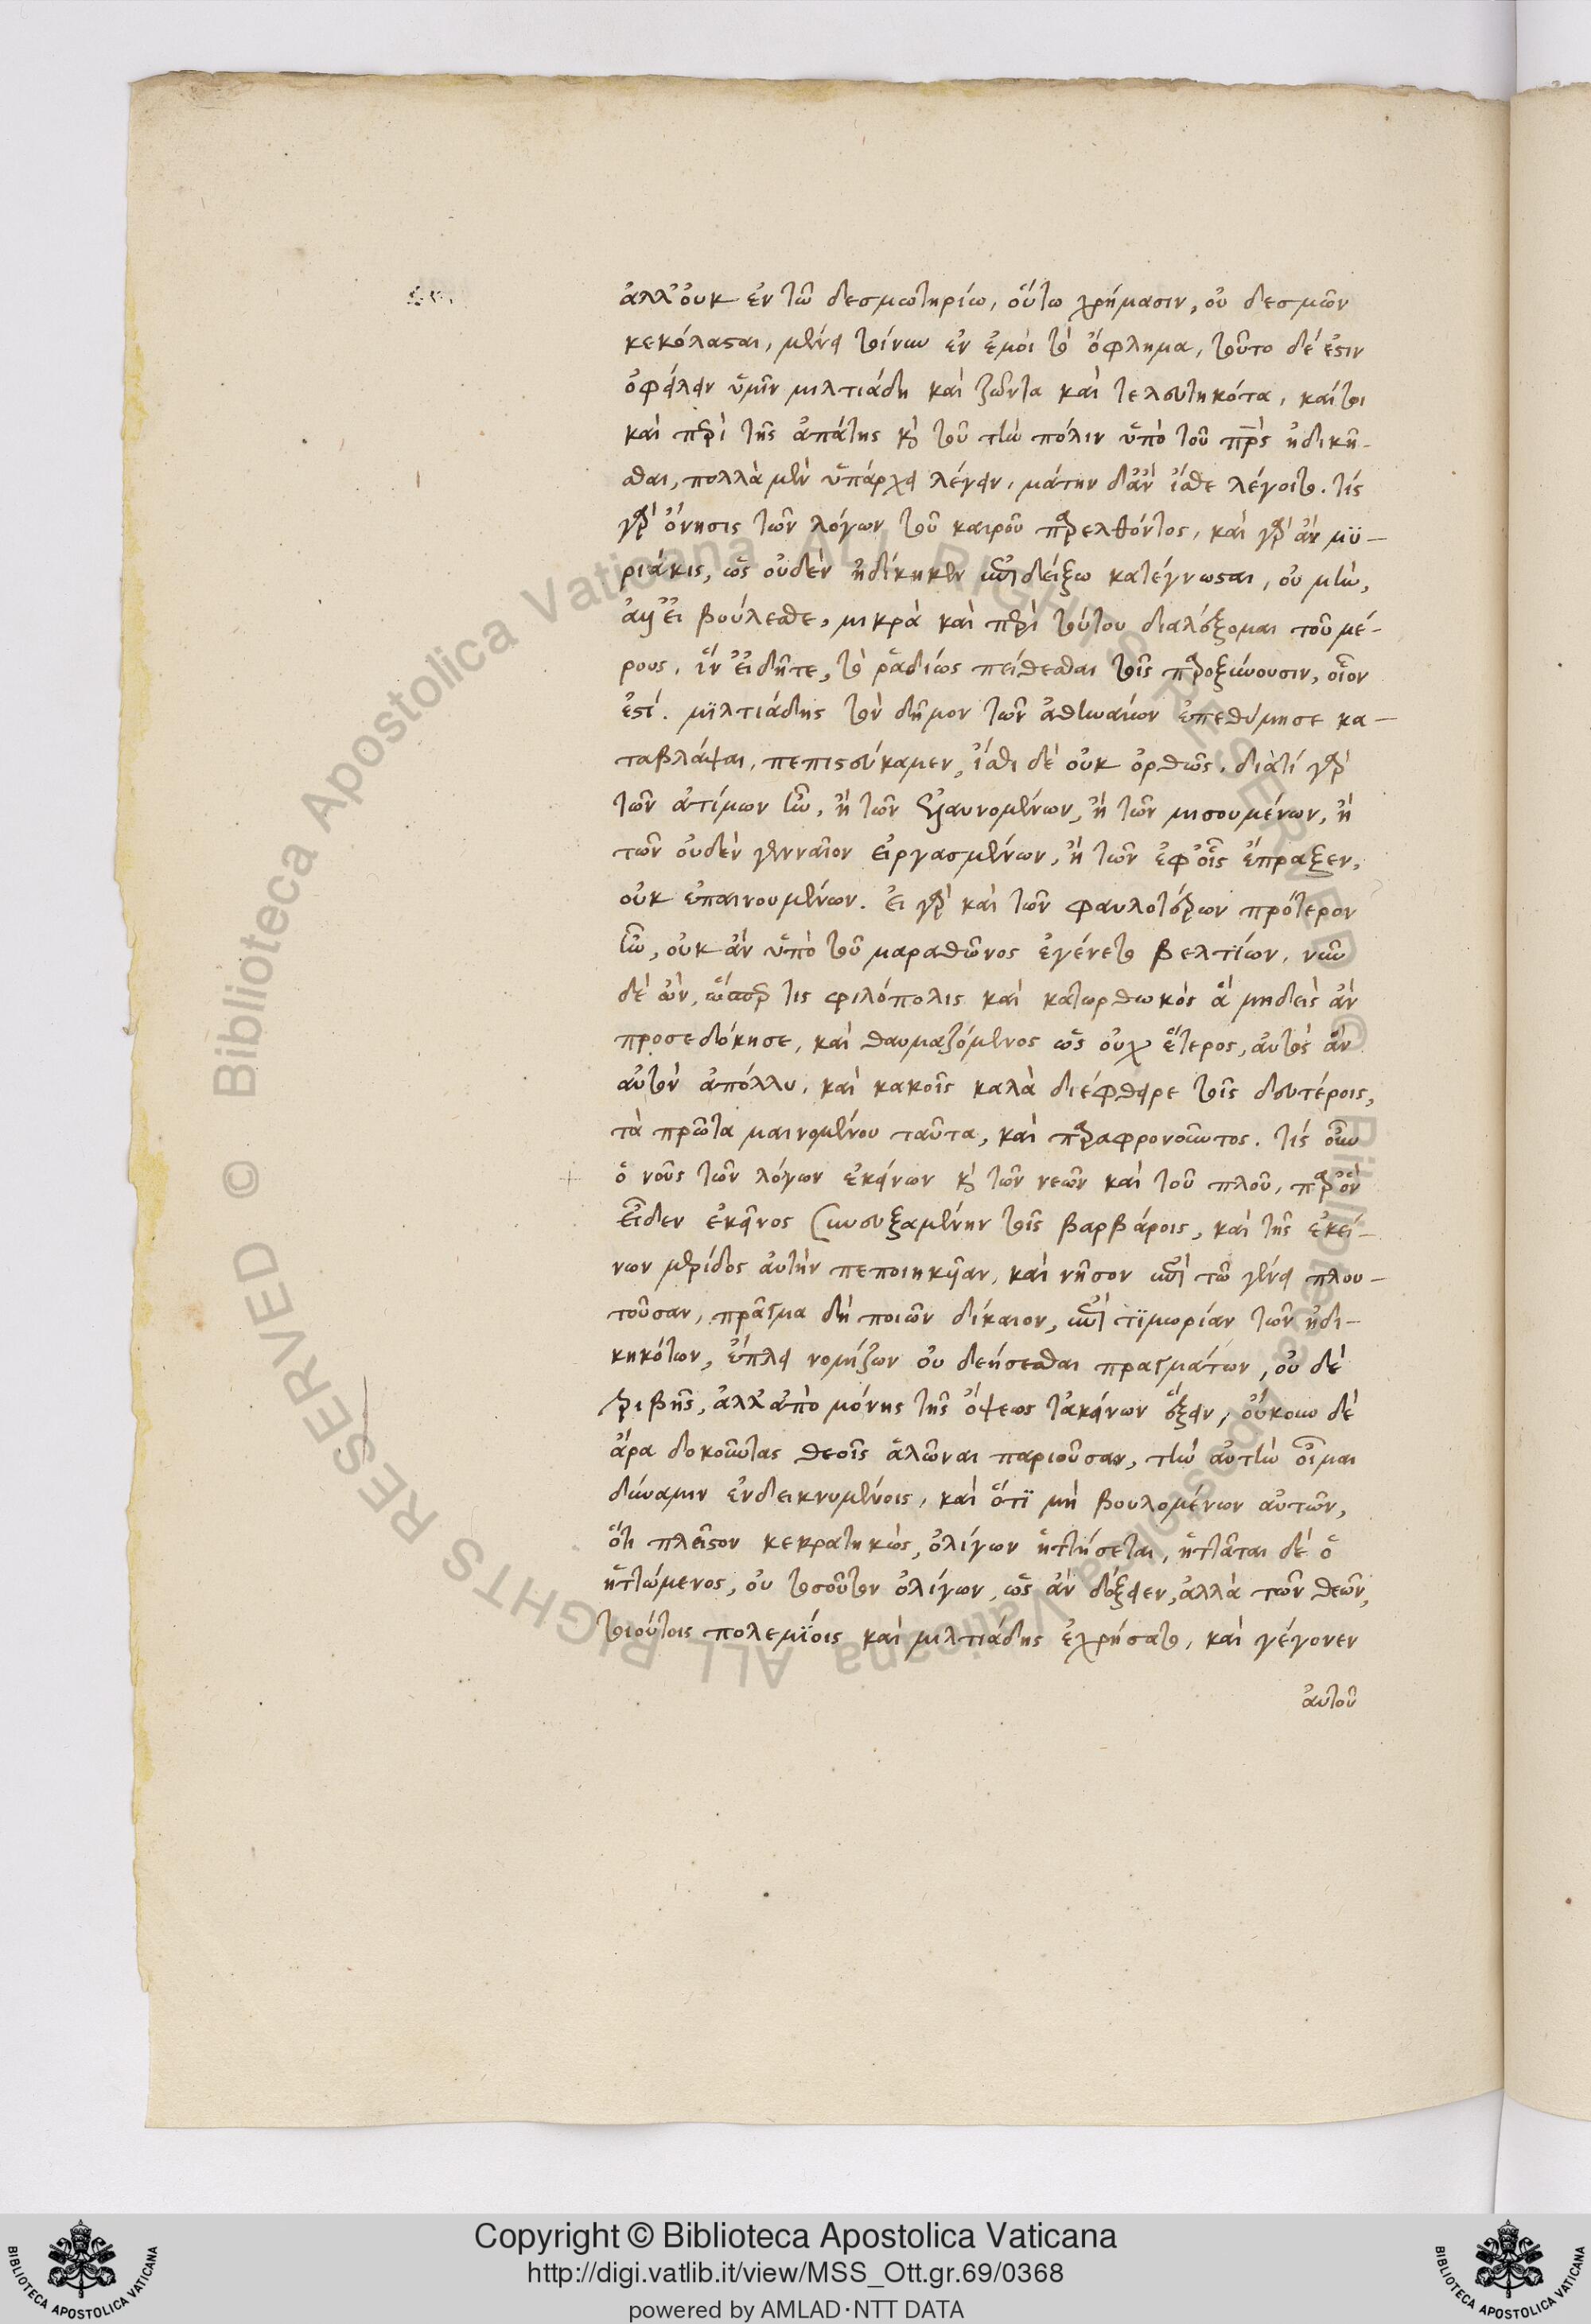 ἀλλ' οὐκ ἐν τῶ δεσμωτηρίω, οὕτω χρήμασιν, οὐ δεσμῶν
κεκόλασται, μένει τοίνυν ἐν ἐμοὶ τὸ ὄφλημα, τοῦτο δέ ἐστιν
ὀφείλειν ὑμῖν μιλτιάδη καὶ ζῶντα καὶ τελευτηκότα, καίτοι
καὶ περὶ τῆς ἀπάτης καὶ τοῦ τὴν πόλιν ὑπὸ τοῦ πρς ἠδικῆ-
σθαι, πολλὰ μὲν ὑπάρχει λέγειν, μάτην δ' ἂν ἴσθε λέγοιτο. τίς
γὰρ ὄνησις τῶν λόγων τοῦ καιροῦ παρελθόντος, καὶ γὰρ ἂν μϋ-
ριάκις, ὡς οὐδὲν ἠδίκηκεν ἐπιδείξω κατέγνωσται, οὐ μὴν,
ἀλλ' εἰ βούλεσθε, μικρὰ καὶ περὶ τούτου διαλέξομαι τοῦ μέ-
ρους, ἵν' εἰδῆτε, τὸ ῥαδίως πείθεσθαι τοῖς παροξύνουσιν, οἷον
ἐστί. μϊλτιάδης τὸν δῆμον τῶν ἀθηναίων ἐπεθύμησε κα-
ταβλάψαι, πεπιστεύκαμεν, ἴσθι δὲ οὐκ ὀρθῶς. διὰ τί γὰρ
τῶν ἀτίμων ἦν, ἢ τῶν ἐλαυνομένων, ἢ τῶν μισουμένων, ἢ
τῶν οὐδὲν γενναῖον εἰργασμένων, ἢ τῶν ἐφ' οἷς ἔπραξεν,
οὐκ ἐπαινουμένων. εἰ γὰρ καὶ τῶν φαυλοτέρων πρότερον
ἦν, οὐκ ἂν ὑπὸ τοῦ μαραθῶνος ἐγένετο βελτϊίων, νῦν
δὲ ὢν, ὥσπερ τις φιλόπολις καὶ κατωρθωκὸς ἃ μηδεὶς ἂν
προσεδόκησε, καὶ θαυμαζόμενος ὡς οὐχ ἕτερος, αὐτὸς ἂν
αὐτὸν ἀπόλλυ, καὶ κακοῖς καλὰ διέφθειρε τοῖς δευτέροις,
τὰ πρῶτα μαινομένου ταῦτα, καὶ παραφρονοῦντος. τίς οὖν
ὁ νοῦς τῶν λόγων ἐκείνων καὶ τῶν νεῶν καὶ τοῦ πλοῦ, παρ' ὃν
εἶδεν ἐκεῖνος συνευξαμένην τοῖς βαρβάροις, καὶ τῆς ἐκεί-
νων μερίδος αὐτὴν πεποιηκυῖαν, καὶ νῆσον ἐπὶ τῶ γένει πλου-
τοῦσαν, πρᾶγμα δὴ ποιῶν δίκαιον, ἐπὶ τϊμωρίαν τῶν ἠδι-
κηκότων, ἔπλει νομίζων οὐ δεήσεσθαι πραγμάτων, οὐ δὲ
τριβῆς, ἀλλ' ἀπὸ μόνης τῆς ὄψεως τἀκείνων ἕξειν, οὔκουν δὲ
ἄρα δοκοῦντας θεοῖς ἁλῶναι παριοῦσαν, τὴν αὐτὴν οἶμαι
δύναμιν ἐνδεικνυμένοις, καὶ ὅτϊ μὴ βουλομένων αὐτῶν,
ὅτι πλεῖστον κεκρατηκὼς, ὀλίγων ἡττήσεται, ἡττᾶται δὲ ὁ
ἡττώμενος, οὐ τοσοῦτον ὀλίγων, ὡς ἂν δόξειεν, ἀλλὰ τῶν θεῶν,
τοιούτοις πολεμϊόις καὶ μιλτιάδης ἐχρήσατο, καὶ γέγονεν
αὐτοῦ
Biblioteca Apostolica Vaticana ALL RIGHTS RESERVED ©
Biblioteca Apostolica Vaticana ALL RIGHTS RESERVED ©
Copyright © Biblioteca Apostolica Vaticana
http://digi.vatlib.it/view/MSS_Ott.gr.69/0368
powered by AMLAD·NTT DATA
BIBLIOTECA APOSTOLICA VATICANA
BIBLIOTECA APOSTOLICA VATICANA